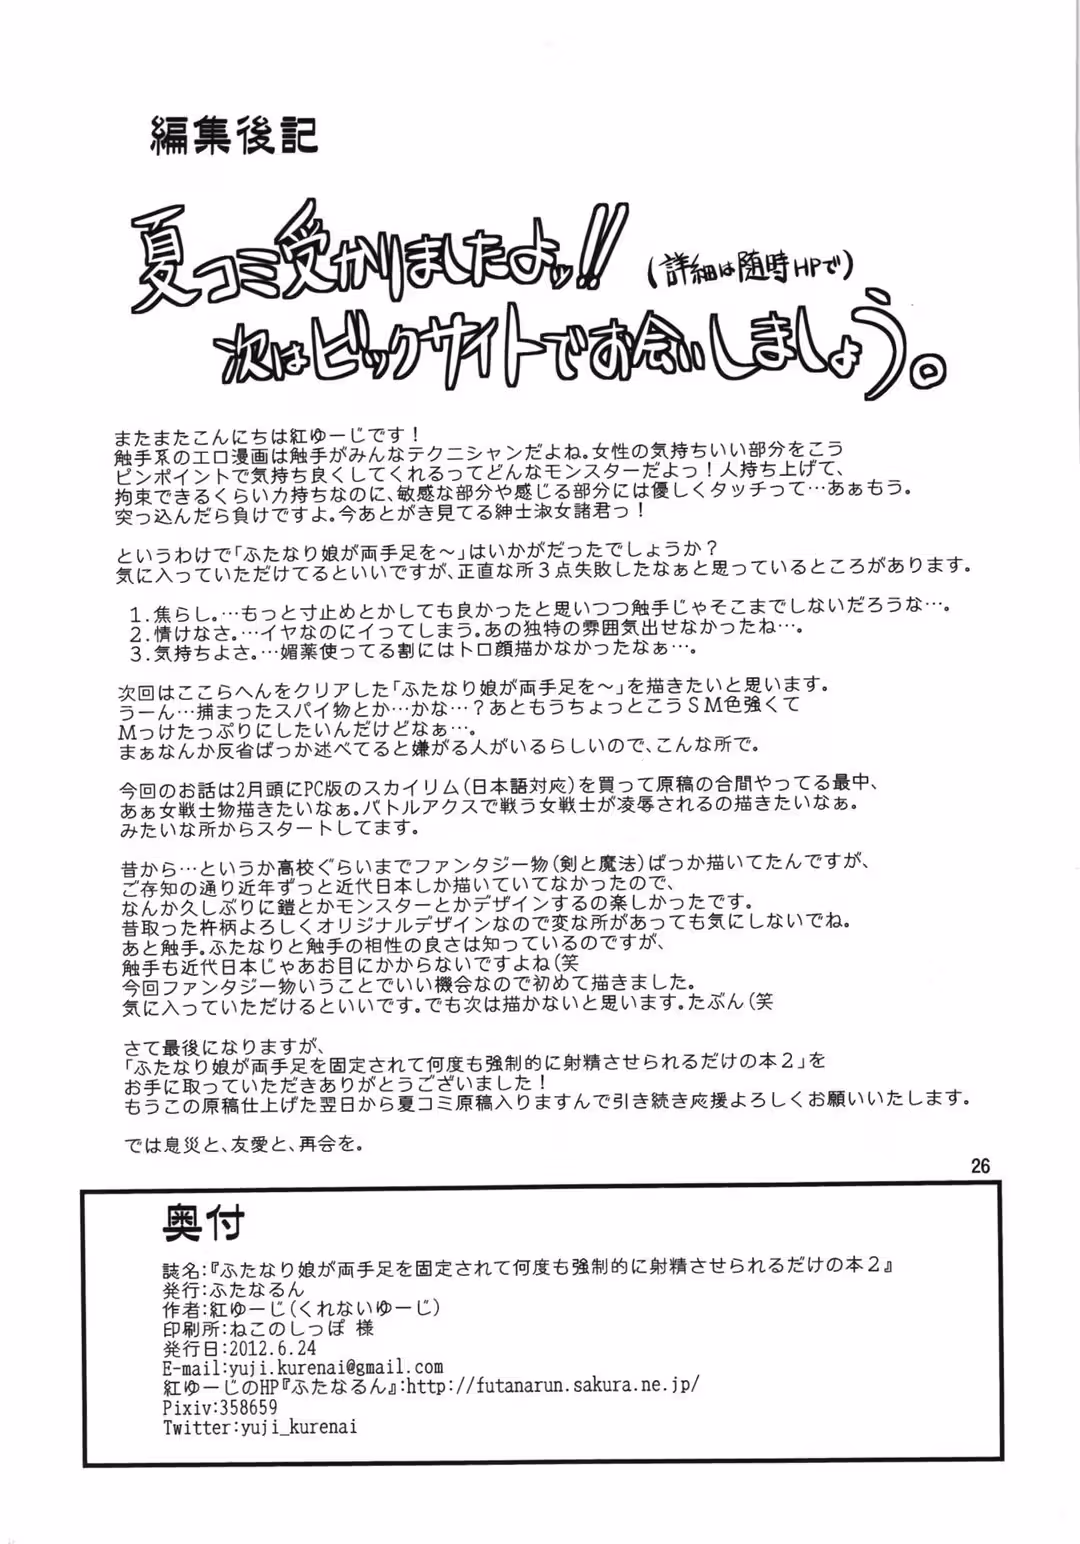 編集後記
夏コミ受かりましたよッ!!（詳細は随時HPで）
次はビックサイトでお会いしましょう。
またまたこんにちは紅ゆーじです！
触手系のエロ漫画は触手がみんなテクニシャンだよね。女性の気持ちいい部分をこう
ピンポイントで気持ち良くしてくれるってどんなモンスターだよっ！人持ち上げて、
拘束できるくらい力持ちなのに、敏感な部分や感じる部分には優しくタッチって…あぁもう。
突っ込んだら負けですよ。今あとがき見てる紳士淑女諸君っ！
というわけで「ふたなり娘が両手足を～」はいかがだったでしょうか？
気に入っていただけてるといいですが、正直な所３点失敗したなぁと思っているところがあります。
１.焦らし。…もっと寸止めとかしても良かったと思いつつ触手じゃそこまでしないだろうな…。
２.情けなさ。…イヤなのにイってしまう。あの独特の雰囲気出せなかったね…。
３.気持ちよさ。…媚薬使ってる割にはトロ顔描かなかったなぁ…。
次回はここらへんをクリアした「ふたなり娘が両手足を～」を描きたいと思います。
うーん…捕まったスパイ物とか…かな…？あともうちょっとこうＳＭ色強くて
Ｍっけたっぷりにしたいんだけどなぁ…。
まぁなんか反省ばっか述べてると嫌がる人がいるらしいので、こんな所で。
今回のお話は2月頭にPC版のスカイリム（日本語対応）を買って原稿の合間やってる最中、
あぁ女戦士物描きたいなぁ。バトルアクスで戦う女戦士が凌辱されるの描きたいなぁ。
みたいな所からスタートしてます。
昔から…というか高校ぐらいまでファンタジー物（剣と魔法）ばっか描いてたんですが、
ご存知の通り近年ずっと近代日本しか描いていてなかったので、
なんか久しぶりに鎧とかモンスターとかデザインするの楽しかったです。
昔取った杵柄よろしくオリジナルデザインなので変な所があっても気にしないでね。
あと触手。ふたなりと触手の相性の良さは知っているのですが、
触手も近代日本じゃあお目にかからないですよね（笑
今回ファンタジー物いうことでいい機会なので初めて描きました。
気に入っていただけるといいです。でも次は描かないと思います。たぶん（笑
さて最後になりますが、
「ふたなり娘が両手足を固定されて何度も強制的に射精させられるだけの本２」を
お手に取っていただきありがとうございました！
もうこの原稿仕上げた翌日から夏コミ原稿入りますんで引き続き応援よろしくお願いいたします。
では息災と、友愛と、再会を。
26
奥付
誌名:『ふたなり娘が両手足を固定されて何度も強制的に射精させられるだけの本２』
発行:ふたなるん
作者:紅ゆーじ（くれないゆーじ）
印刷所:ねこのしっぽ 様
発行日:2012.6.24
E-mail:yuji.kurenai@gmail.com
紅ゆーじのHP『ふたなるん』:http://futanarun.sakura.ne.jp/
Pixiv:358659
Twitter:yuji_kurenai